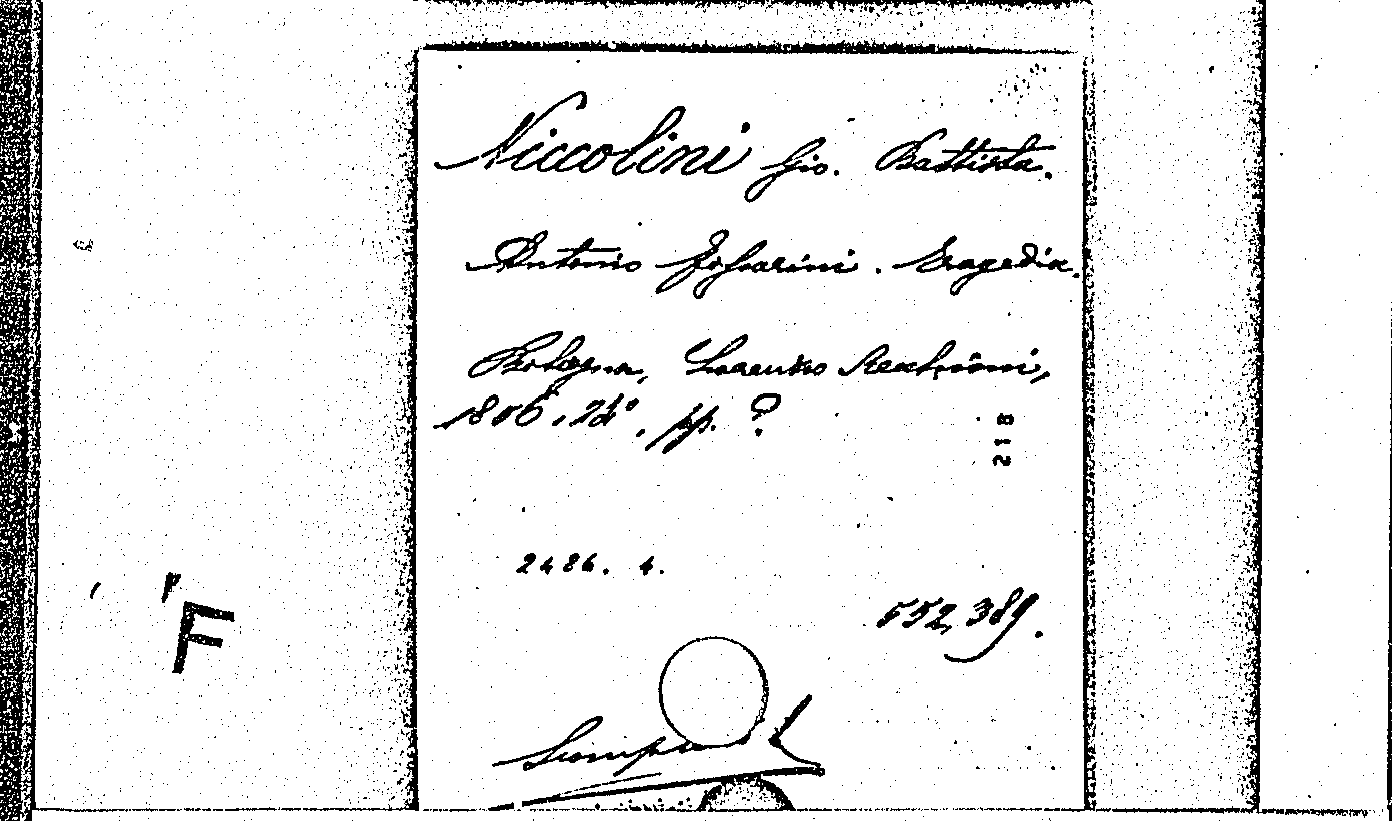 Niccolini Gio. Battista.
Antonio Foscarini. Tragedia.
Bologna, Lorenzo
1806. pp. ?
218
2486. 4.
552,389.
F